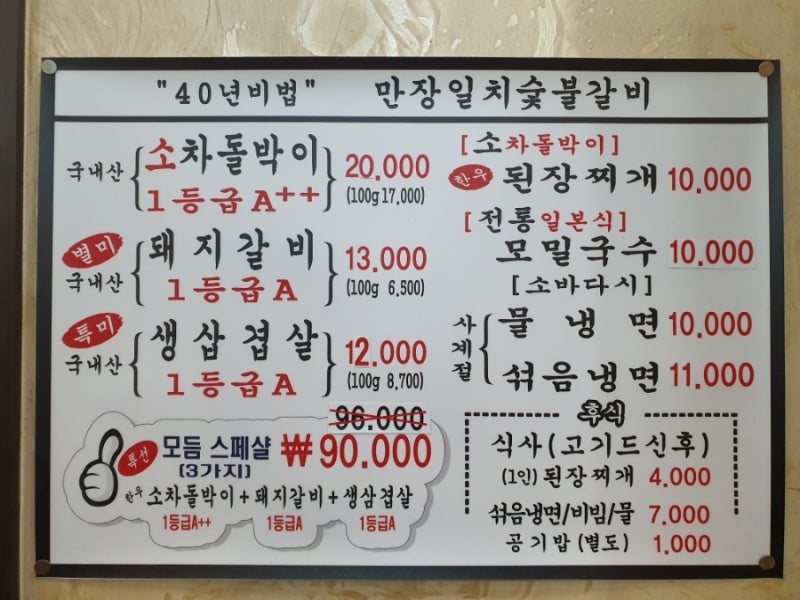 "40년비법" 만장일치숯불갈비
국내산 소차돌박이 20.000
1등급A++ (100g 17,000)
별미
국내산 돼지갈비 13.000
1등급A (100g 6,500)
특미
국내산 생삼겹살 12.000
1등급A (100g 8,700)
96.000
특선 모듬 스페샬 ₩90.000
(3가지)
한우 소차돌박이+돼지갈비+생삼겹살
1등급A++ 1등급A 1등급A
[소차돌박이]
한우 된장찌개 10.000
[전통일본식]
모밀국수 10.000
[소바다시]
사계절 물냉면 10.000
섞음냉면 11.000
후식
식사(고기드신후)
(1인) 된장찌개 4.000
섞음냉면/비빔/물 7.000
공기밥(별도) 1.000